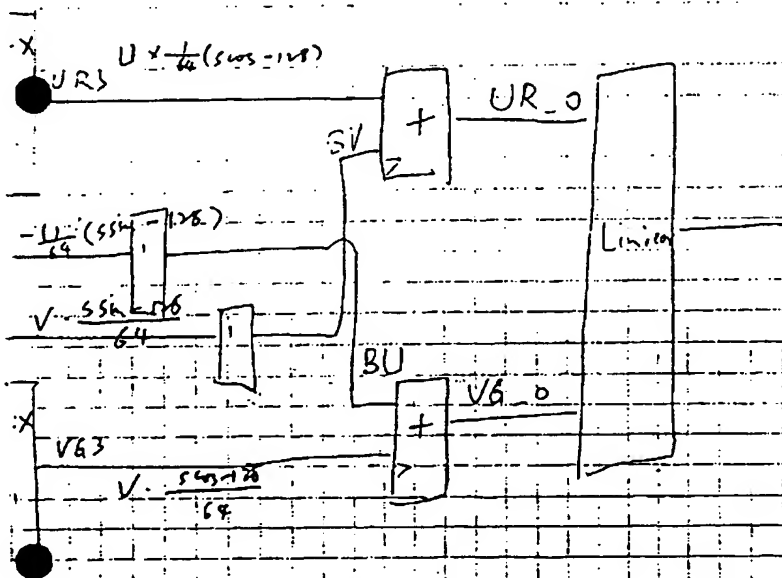 X
UR3
U × 1/64 (scos -128)
+
UR_0
BV
-U/64 (ssin -128)
Limiter
V · ssin / 64
BU
+
VG_0
X
VG3
V · scos-128 / 64